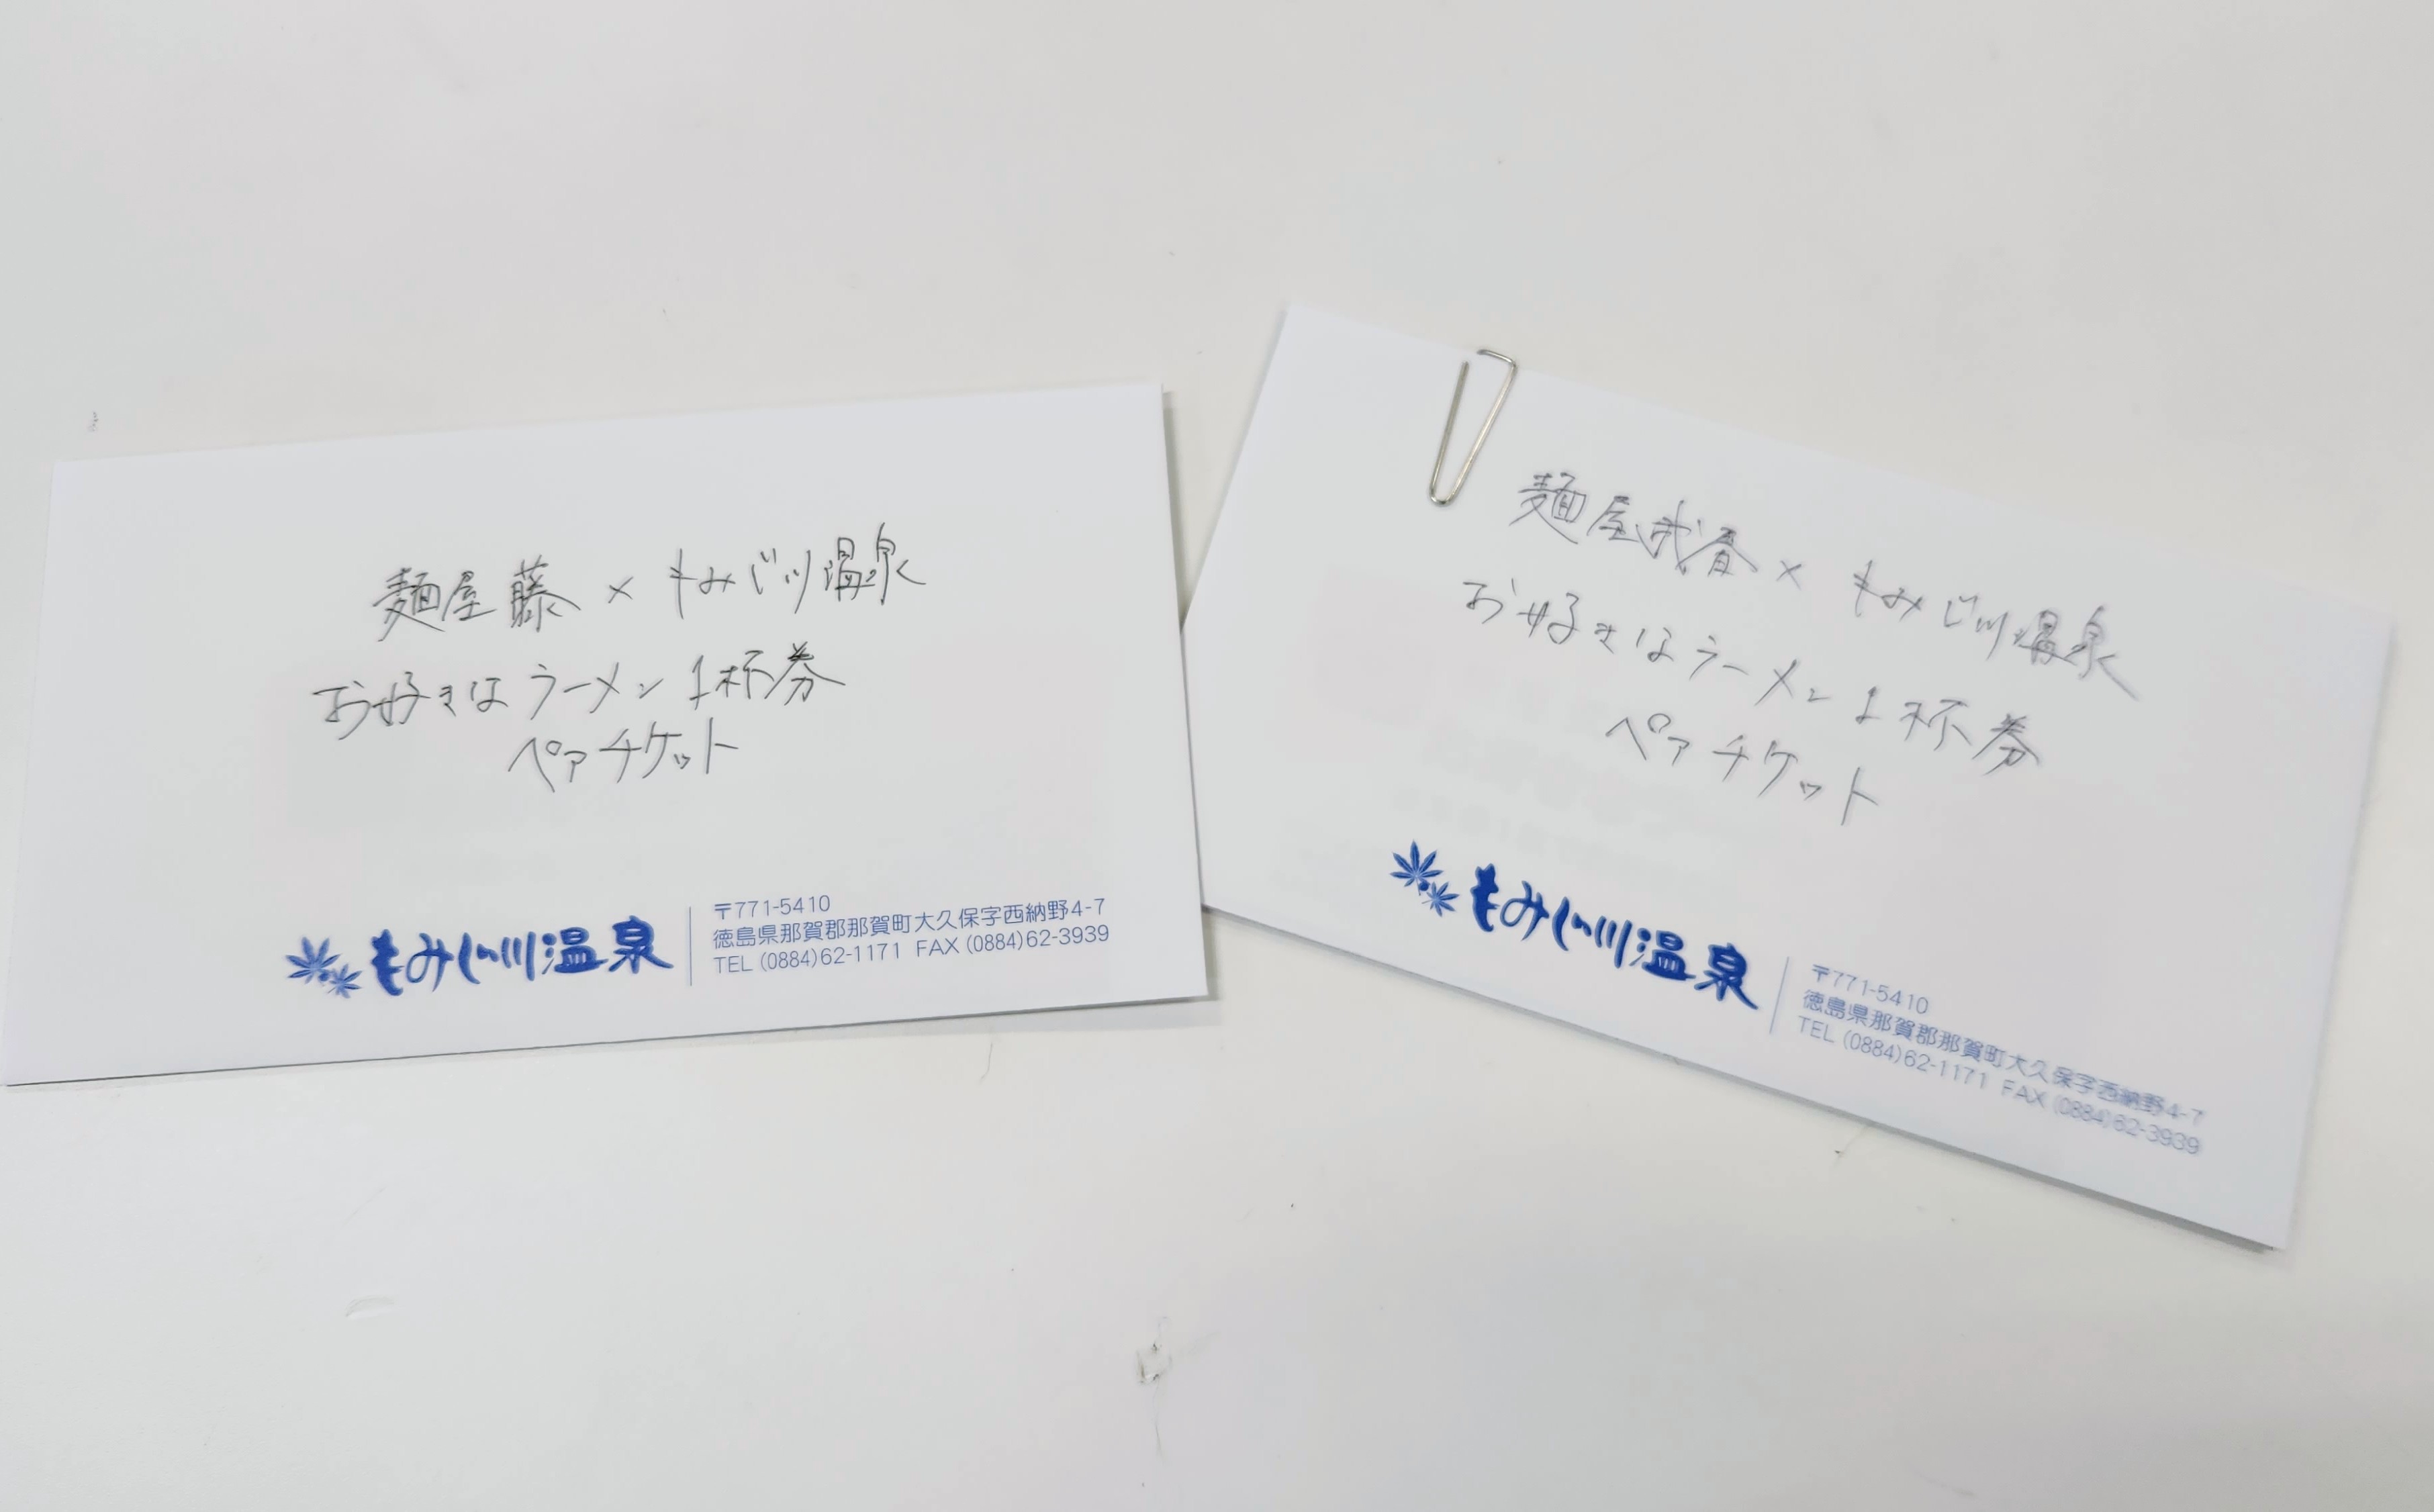 麺屋 藤 × もみじ川温泉
お好きなラーメン1杯券
ペアチケット
もみじ川温泉
〒771-5410
徳島県那賀郡那賀町大久保字西納野4-7
TEL (0884)62-1171 FAX (0884)62-3939
麺屋我春 × もみじ川温泉
お好きなラーメン1杯券
ペアチケット
もみじ川温泉
〒771-5410
徳島県那賀郡那賀町大久保字西納野4-7
TEL (0884)62-1171 FAX (0884)62-3939